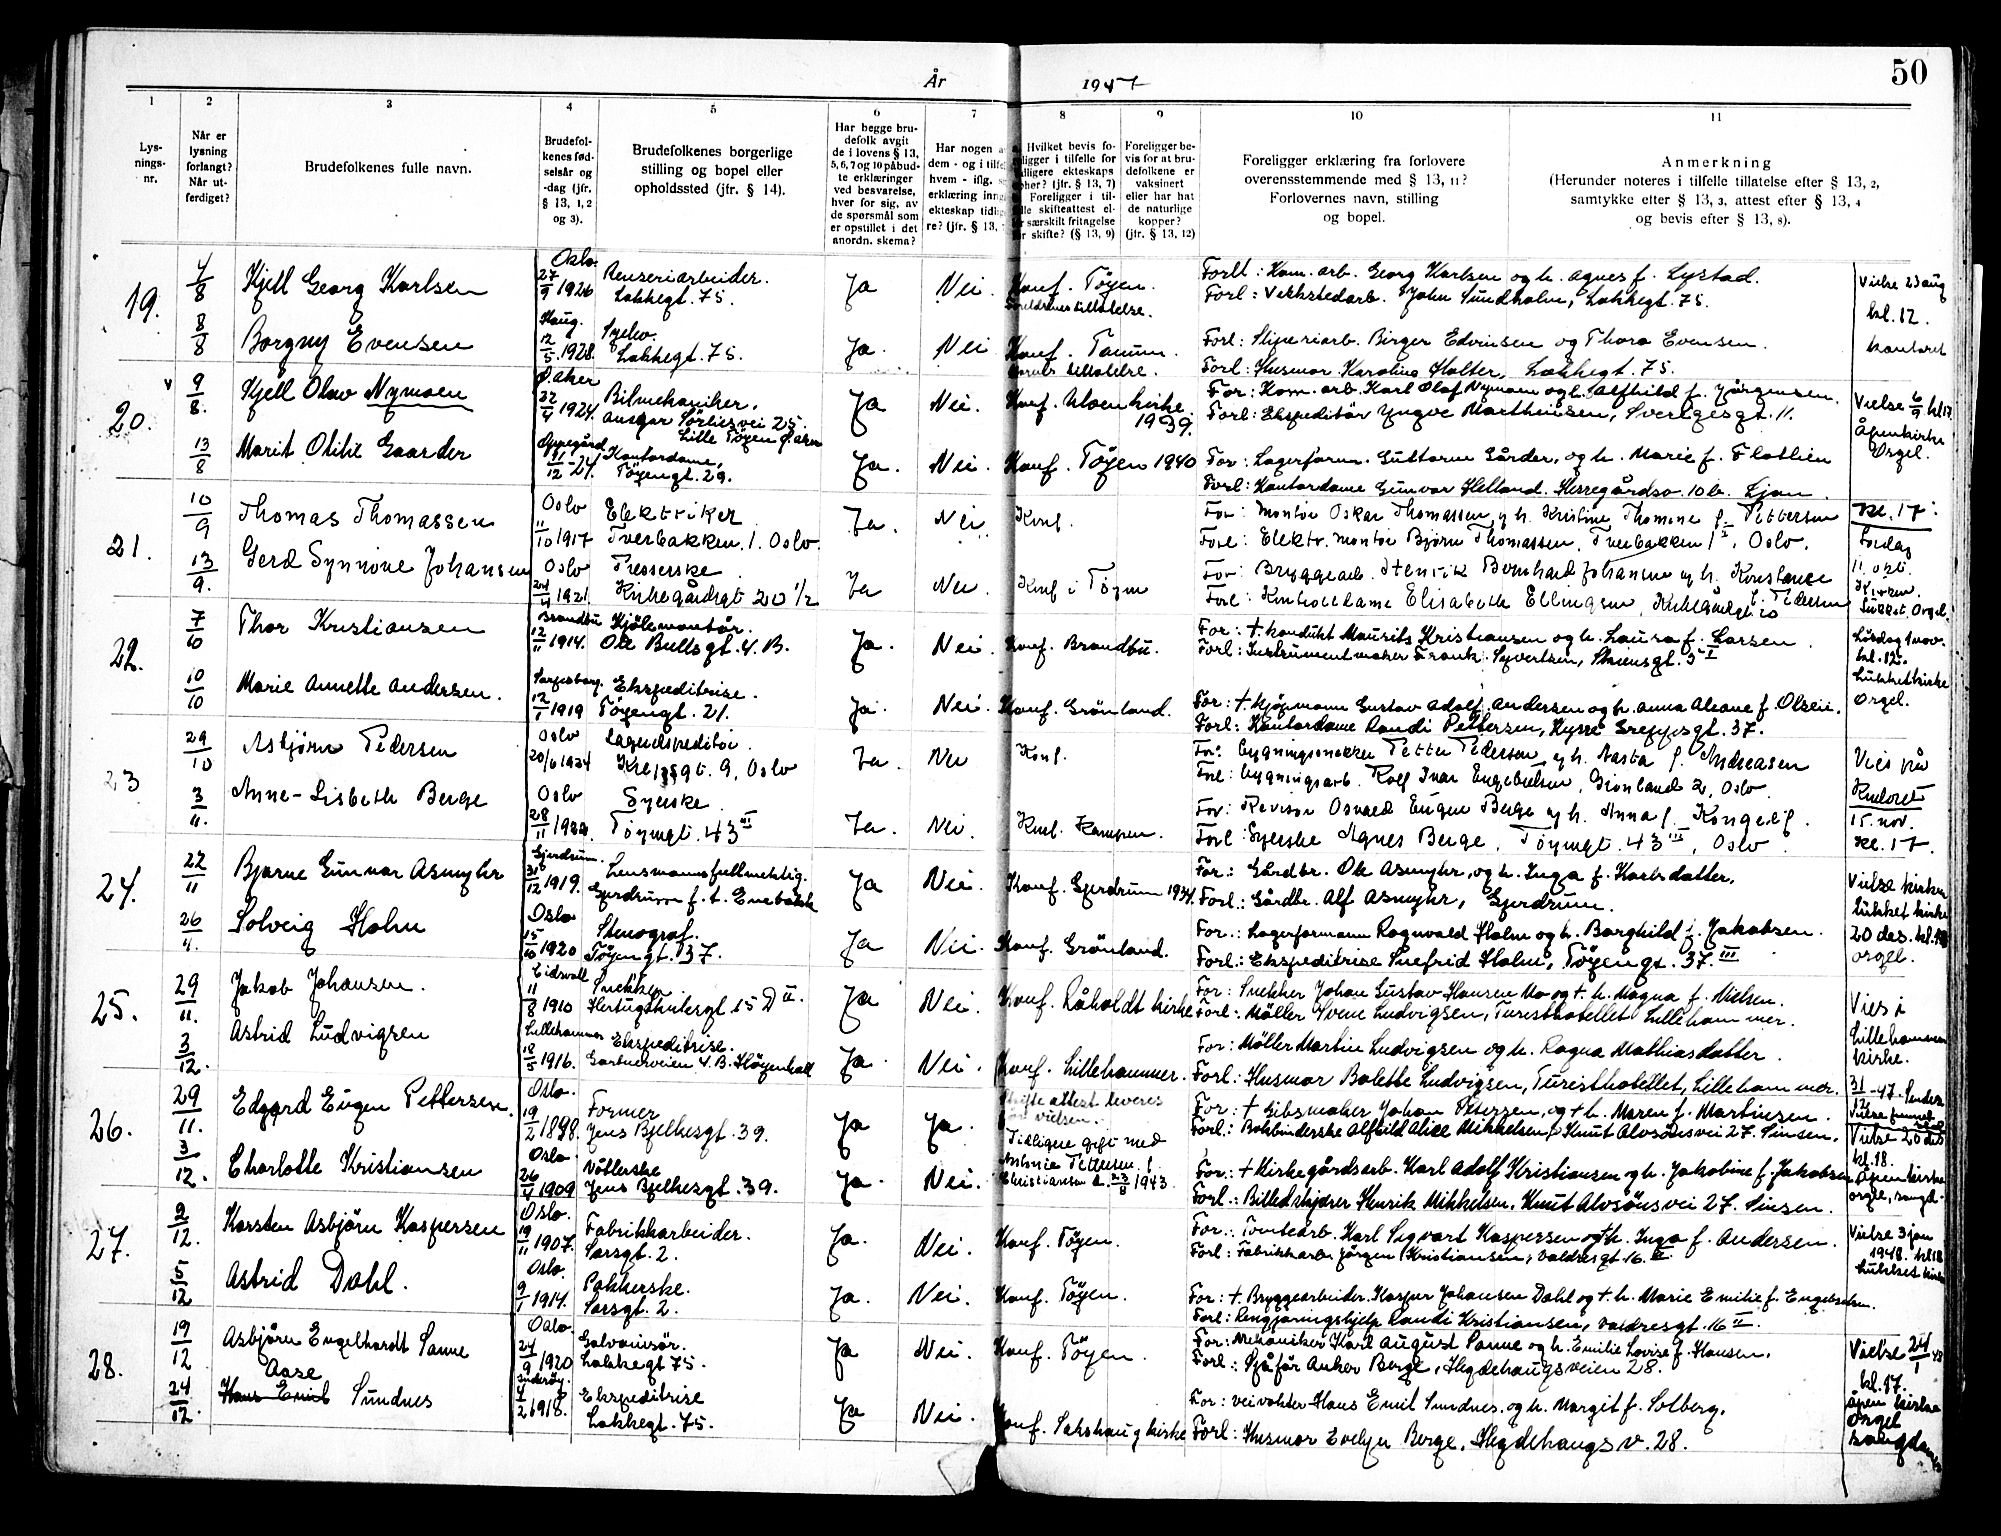 År 1947
50
1 2 3 4 5 6 7 8 9 10 11
Lys-
nings-
nr.
Når er
lysning
forlangt?
Når ut-
ferdiget?
Brudefolkenes fulle navn.
Brudefol-
kenes fød-
selsår og
-dag (jfr.
§ 13, 1, 2
og 3).
Brudefolkenes borgerlige
stilling og bopel eller
opholdssted (jfr. § 14).
Har begge bru-
defolk avgit
de i lovens § 13,
5, 6, 7 og 10 påbud-
te erklæringer
ved besvarelse,
hver for sig, av
de spørsmål som
er opstillet i det
anordn. skema?
Har nogen a
dem - og i tilfe
hvem - iflg. s
erklæring inng
ekteskap tidlig
re? (jfr. § 13,
Hvilket bevis fo-
religger i tilfelle for
tidligere ekteskaps
opher? (jfr. § 13, 7)
Foreligger i til-
felle skifteattest el-
ler særskilt fritagelse
for skifte? (§ 13, 9)
Foreligger be-
vis for at bru-
defolkene er
vaksinert
eller har hat
de naturlige
kopper?
(jfr. § 13, 12)
Foreligger erklæring fra forlovere
overensstemmende med § 13, 11?
Forlovernes navn, stilling
og bopel.
Anmerkning
(Herunder noteres i tilfelle tillatelse efter § 13, 2,
samtykke efter § 13, 3, attest efter § 13, 4
og bevis efter § 13, 8).
19.
4/8 Kjell Georg Karlsen Oslo. 27/9 1926 Renseriarbeider. Lakkegt. 75. Ja Nei. Konf. Tøyen. Foreldres tillatelse.
Kom. arb. Georg Karlsen og h. Agnes f. Lystad.
Forl: Verkstedarb. John Sundholm, Lakkegt. 75.
Vielse 23 aug kl. 12. kontoret
8/8 Borgny Evensen Haug. 12/5 1928. Lakkegt. 75. Ja. Nei Konf. Tanum. tillatelse.
Forl: Birger Edvinsen og Thora Evensen.
Forl: Husmor Karoline Holter, Lakkegt. 75.
20.
v 9/8. Kjell Olav Nymoen Ø. aker 22/4 1924. Bilmekaniker, Ansgar Sørliesvei 25. Lille Tøyen Ø. aker Ja Nei. Konf. 1939.
For: Kom. arb. Karl Olaf Nymoen og h. Alfhild f. Jørgensen.
Forl: Ekspeditør Yngve Marthinsen, Sverigesgt. 11.
Vielse 6/9 kl 17. Åpen kirke Orgel.
13/8 Marit Otilie Gaarder Oppegård 11/12 -24. Kontordame, Tøyengt. 29. Ja. Nei. Konf. Tøyen 1940
For: Lagerform. Guttorm Gårder, og h. Marie f. Flatlien
Forl: Kontordame Gunvor Helland. Herregårdsv. 10 b. Ljan.
21.
10/9 Thomas Thomassen Oslo 11/10 1917 Elektriker Tverbakken 1. Oslo. Ja. Nei. Konf.
For: Montør Oskar Thomassen og h. Kristine Thomine f. Pettersen
Forl: Elektr. montør Bjørn Thomassen, Tverbakken 1 I, Oslo.
kl. 17. Lørdag 11. okt. Kirken. Lukket. Orgel.
13/9. Gerd Synnøve Johansen Oslo 24/4 1921. Presserske Kirkegårdsgt 20 1/2 Ja Nei Konf i Tøyen
For: Bryggearb. Henrik Bernhard Johansen og h. Konstance f. Pedersen
Forl: Kontordame Elisabeth Ellingsen, Kirkegårdsgt 10
22.
7/10 Thor Kristiansen Brandbu 12/11 1914. Kjølemontør. Ole Bullsgt. 4. B. Ja. Nei. Konf. Brandbu.
For: † Kondukt Maurits Kristiansen og h. Laura f. Larsen.
Forl: Instrumentmaker Frank Syvertsen, Skiensgt. 3 I
Lørdag 1 nov. kl. 12. Lukket kirke Orgel.
10/10 Marie Annette Andersen. Sarpsborg. 12/1 1919 Ekspeditrise. Tøyengt. 21. Ja. Nei. Konf. Grønland.
For: † Kjøpmann Gustav Adolf Andersen og h. Anna Aleane f. Olsen.
Forl: Kontordame Randi Pettersen, Kyrre Greppsgt. 37.
23
29/10 Asbjørn Pedersen Oslo 20/6 1924 Lagerekspeditør. gt. 9, Oslo Ja. Nei Konf.
For: bygningssnekker Petter Pedersen og h. Aasta f. Andreasen
Forl: bygningsarb. Rolf Ivar Engebretsen, Grønland 2, Oslo.
Vies på Kontoret 15. nov. kl. 17.
3/11. Anne-Lisbeth Berge Oslo 28/11 Syerske Tøyengt. 43 III Ja. Nei. Konf. Kampen.
For: Revisor Osvald Eugen Berge og h. Anna f. Kongelf.
Forl: Syerske Agnes Berge, Tøyengt. 43 III, Oslo.
24.
22/11 Bjarne Gunnar Asmyhr Gjerdrum. 31/12 1919. Lensmannsfullmektig. Gjerdrum f. t. Enebakk Ja Nei. Konf. Gjerdrum 1934.
For: Gårdbr. Ole Asmyhr, og h. Inga f. Karlsdatter.
Forl: Gårdbr. Alf Asmyhr, Gjerdrum.
Vielse kirken Lukket kirke 20 des. kl. 18 orgel.
26/4. Solveig Holm Oslo 15/10 1920 Stenograf. Tøyengt. 37. Ja Nei. Konf. Grønland.
For: Lagerformann Ragnvald Holm og h. Borghild f. Jakobsen.
Forl: Ekspeditrise Snefrid Holm, Tøyengt. 37. III
25.
29/11. Jakob Johansen. Eidsvoll 11/8 1910 Snekker. Hertug gt 15 D II. Ja Nei. Konf. Råholdt kirke
For: Snekker Johan Gustav Hansen Mo og † h. Magna f. Nielsen.
Forl: Møller Yvene Ludvigsen, Turisthotellet Lillehammer.
Vies i Lillehammer kirke. 31/12 -47.
3/12. Astrid Ludvigsen Lillehammer 18/5 1916. Ekspeditrise. Gartnerveien 4. B. Høyenhall Ja. Nei. Konf. Lillehammer.
For: Møller Martin Ludvigsen og h. Ragna Mathiasdatter.
Forl: Husmor Bolette Ludvigsen, Turisthotellet, Lillehammer.
26.
29/11. Edgard Eugen Pettersen. Oslo. 19/2 1898. Former Jens Bjelkesgt. 39. Ja Ja. Skifte attest leveres før vielsen. Tidligere gift med Antonie Pettersen f. Christiansen d. 23/8 1943
For: † Gibsmaker Johan Petersen, og † h. Maren f. Martinsen.
Forl: Bokbinderske Alfhild Alice Mikkelsen, Knut Alvsønsvei 27. Sinsen.
Vielse 20 des kl. 18. Åpen kirke orgel, sang.
3/12. Charlotte Kristiansen Oslo. 26/4 1909 Jens Bjelkesgt. 39. Ja. Nei.
For: † Kirkegårdsarb. Karl Adolf Kristiansen og h. Jakobine f. Jakobsen
Forl: Billedskjærer Henrik Mikkelsen, Knut Alvsønsvei 27. Sinsen.
27.
2/12. Karsten Asbjørn Kaspersen Oslo. 19/11 1907. Fabrikkarbeider. Sarsgt. 2. Ja. Nei. Konf. Tøyen.
For: Tomtearb. Karl Sigvart Kaspersen og † h. Inga f. Andersen.
Forl: Fabrikkarb. Jørgen Kristiansen, Valdresgt 16. II
Vielse 3 jan 1948. kl 18 Lukket kirke
5/12 Astrid Dahl. Oslo. 9/1 1914. Pakkerske. Sarsgt. 2. Ja. Nei. Konf. Tøyen.
For: † Bryggearbeider Kasper Johansen Dahl og † h. Marie Emilie f. Engebretsen.
Forl: Rengjøringshjelp Randi Kristiansen, Valdresgt. 16 II.
28.
19/12 Asbjørn Engelhardt Sanne Oslo. 24/9 1920 Galvanisør. Lakkegt 75. Ja Nei. Konf. Tøyen.
For: Mekaniker Karl August Sanne og h. Emilie Lovise f. Hansen.
Forl: Sjåfør Anker Berge, Hegdehaugsveien 28.
Vielse 24/1 48 kl. 17. åpen kirke Orgel
24/12. Aase Hans Emil Sundnes Inderøy. 4/2 1918. Ekspeditrise Lakkegt. 75. Ja Nei. Konf. Sakshaug kirke
For: Veivokter Hans Emil Sundnes, og h. Margit f. Solberg.
Forl: Husmor Evelyn Berge, Hegdehaugs v. 28.